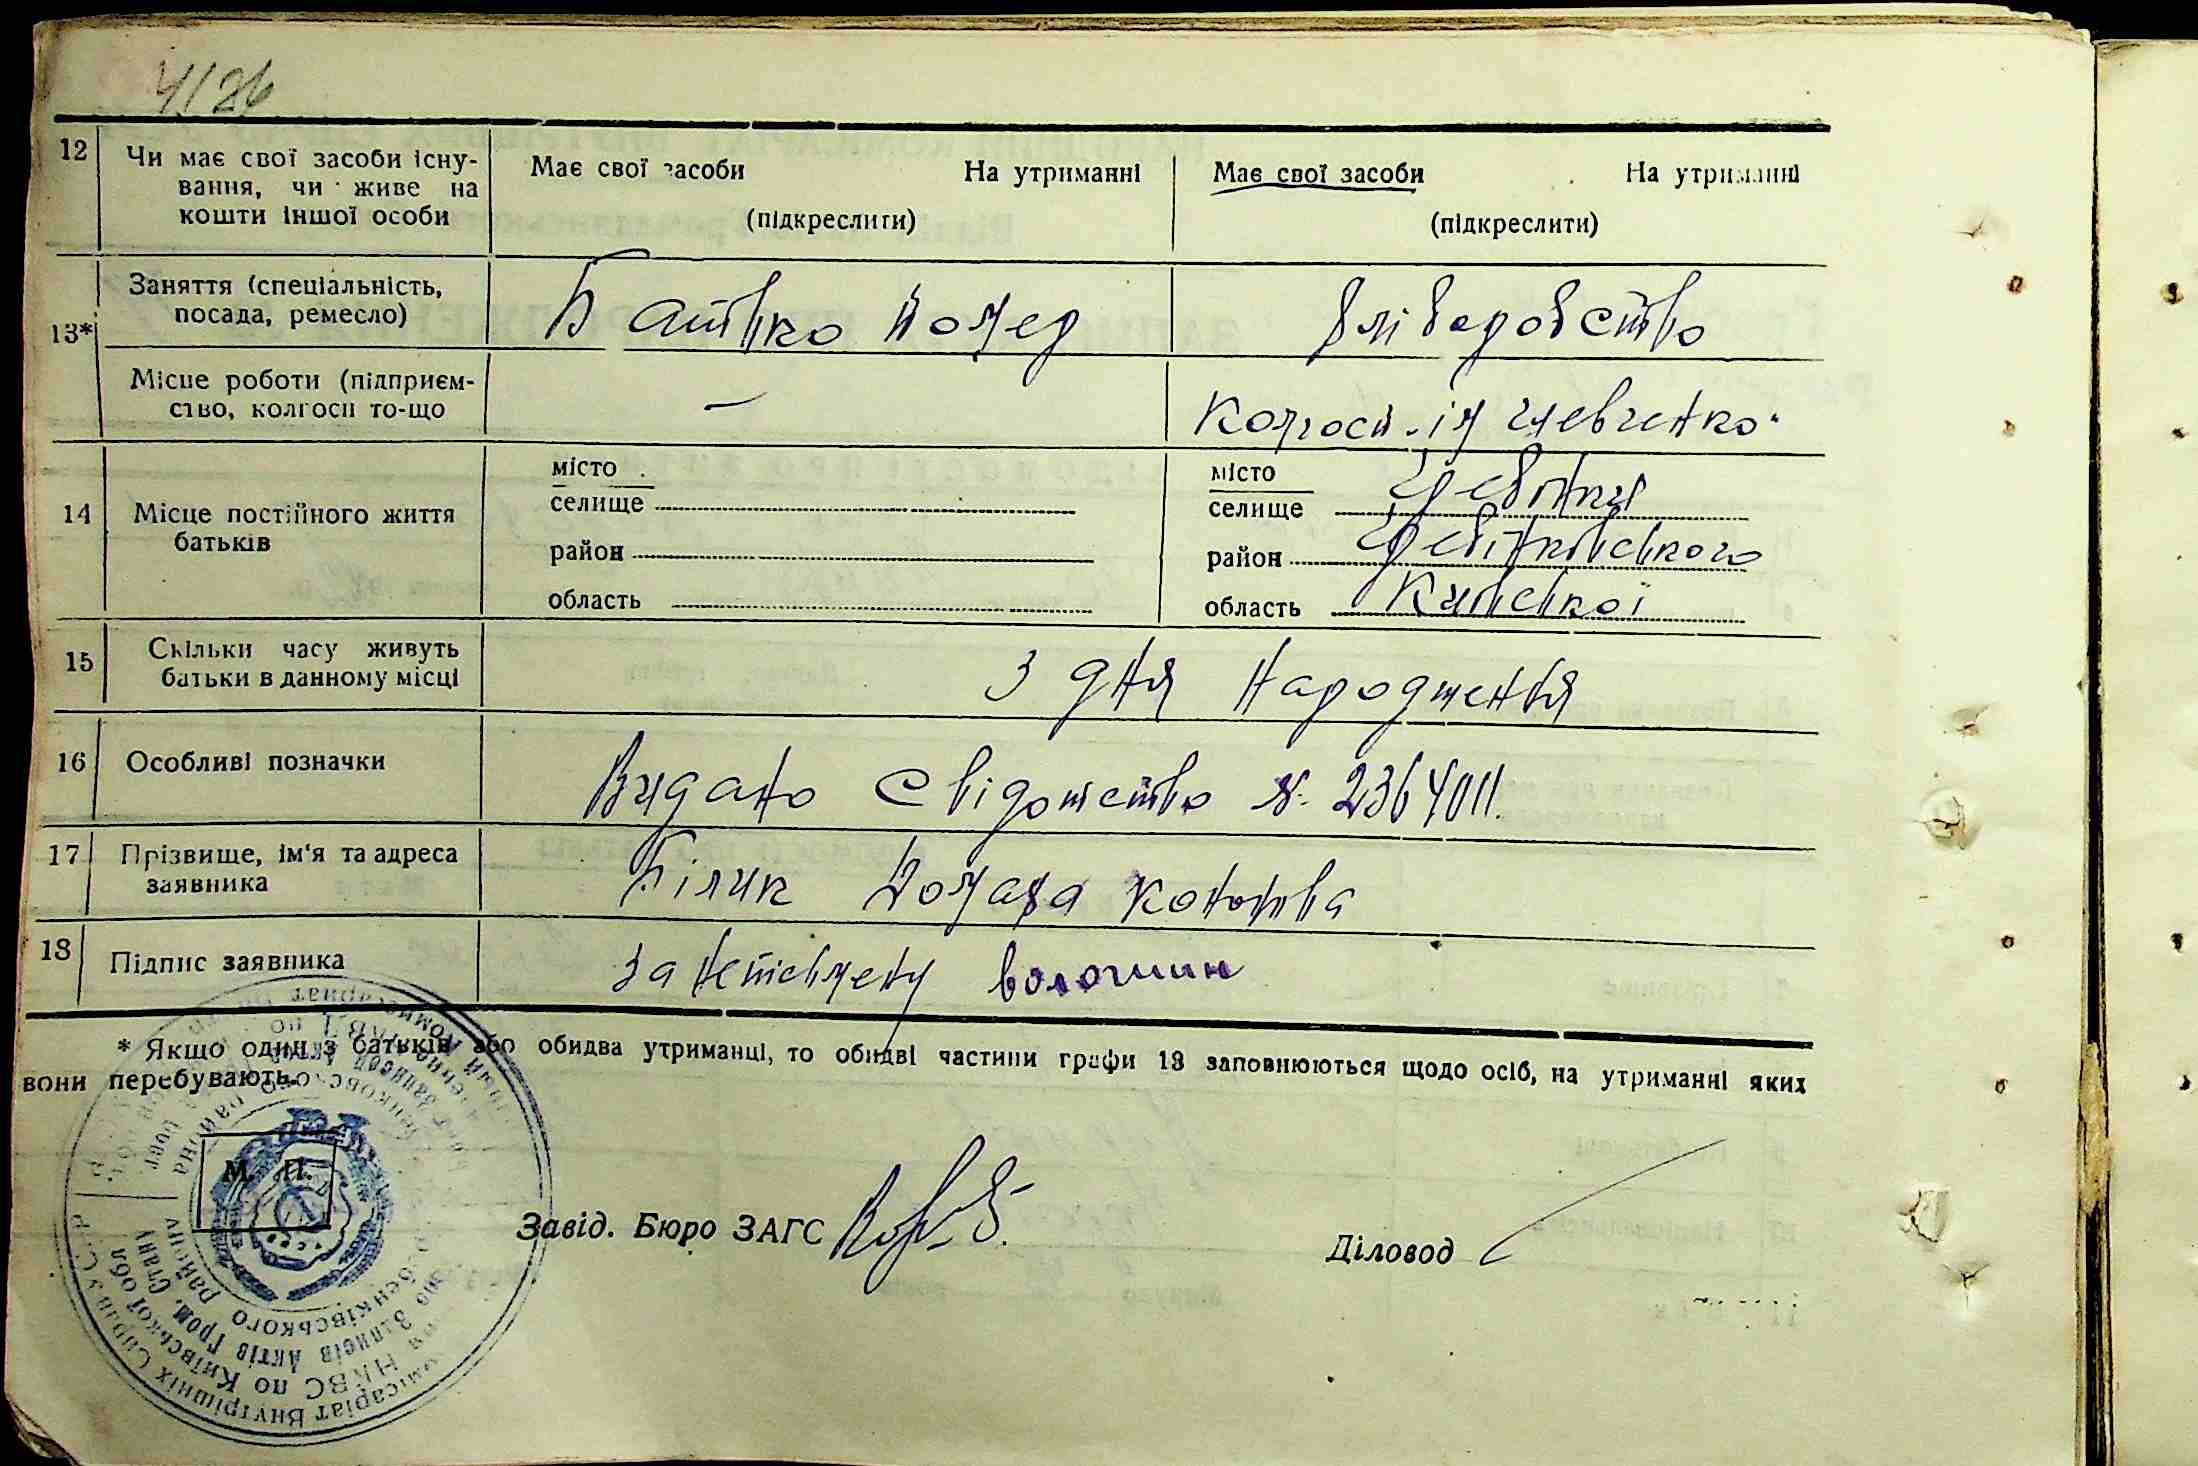 4/26
12 Чи має свої засоби існу-
вання, чи живе на
кошти іншої особи
Має свої засоби На утриманні
(підкреслити)
Має свої засоби На утриманні
(підкреслити)
13* Заняття (спеціальність,
посада, ремесло)
Батько помер
хліборобство
Місце роботи (підприєм-
ство, колгосп то-що
—
Колгосп ім Шевченко
14 Місце постійного життя
батьків
місто
селище
район
область
місто
селище Гребінки
район Гребінківського
область Київської
15 Скільки часу живуть
батьки в данному місці
З дня народження
16 Особливі позначки
Видано Свідотство № 2364011.
17 Прізвище, ім'я та адреса
заявника
Білик
18 Підпис заявника
за неписьмену волошин
* Якщо один з батьків або обидва утриманці, то обидві частини графи 13 заповнюються щодо осіб, на утриманні яких
вони перебувають.
М. П.
Завід. Бюро ЗАГС
Діловод
Внутрішніх Справ УСРР
НКВС по Київській обл
Записів Актів Гром. Стану
Гребенківського району